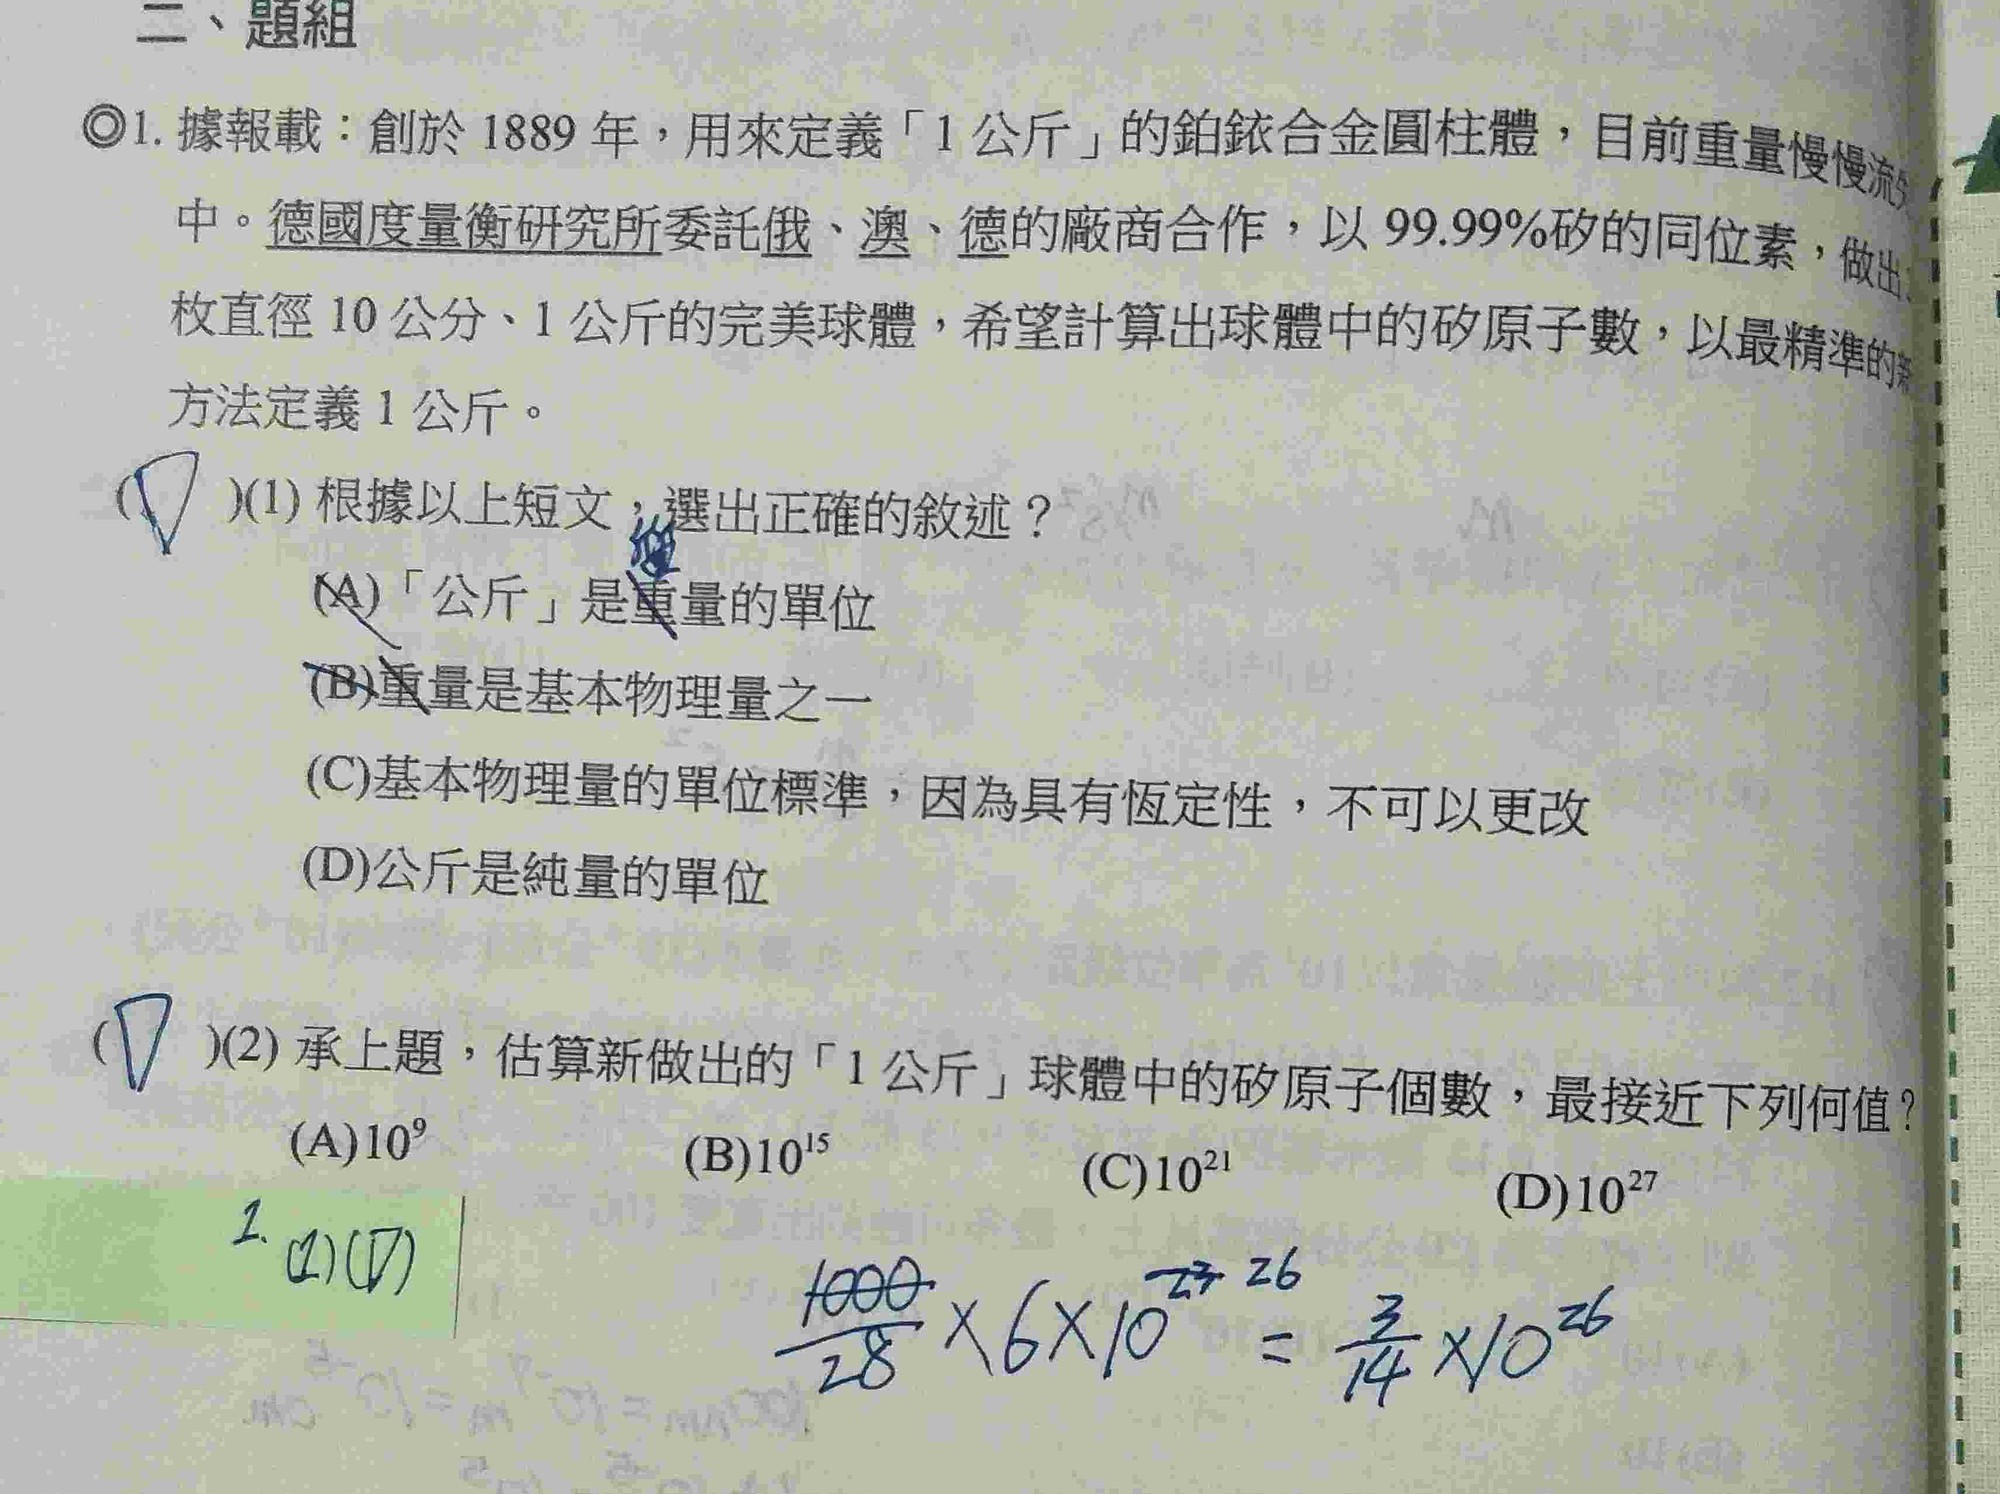 二、題組
◎1. 據報載：創於 1889 年，用來定義「1 公斤」的鉑銥合金圓柱體，目前重量慢慢流失
中。德國度量衡研究所委託俄、澳、德的廠商合作，以 99.99%矽的同位素，做出
枚直徑 10 公分、1 公斤的完美球體，希望計算出球體中的矽原子數，以最精準的新
方法定義 1 公斤。
(D)(1) 根據以上短文，選出正確的敘述？
(A)「公斤」是重量的單位
(B)重量是基本物理量之一
(C)基本物理量的單位標準，因為具有恆定性，不可以更改
(D)公斤是純量的單位
(D)(2) 承上題，估算新做出的「1 公斤」球體中的矽原子個數，最接近下列何值？
(A)10⁹ (B)10¹⁵ (C)10²¹ (D)10²⁷
1. (1)(D)
1000/28 × 6 × 10²³ 26 = 3/14 × 10²⁶